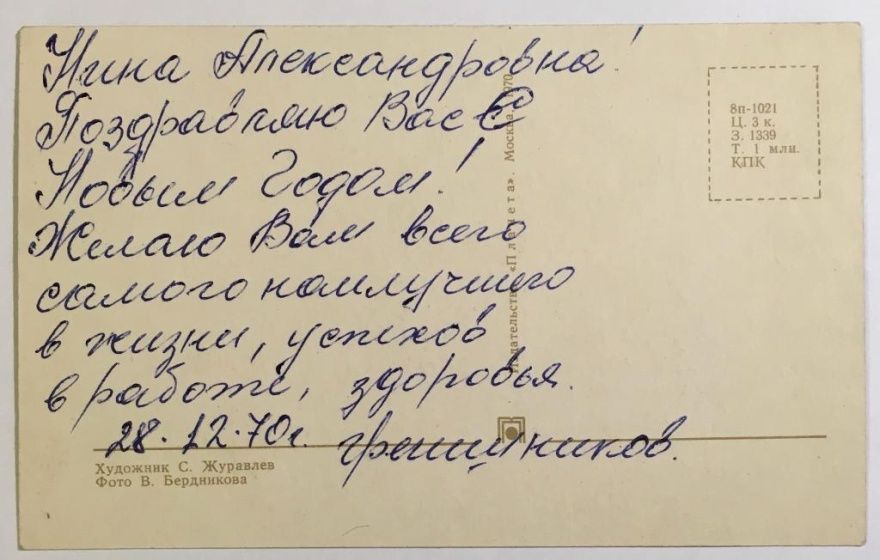 Нина Александровна!
Поздравляю Вас с
Новым Годом!
Желаю Вам всего
самого наилучшего
в жизни, успехов
в работе, здоровья.
28.12.70г.
Художник С. Журавлев
Фото В. Бердникова
Издательство «Планета». Москва, 1970
8п-1021
Ц. 3 к.
З. 1339
Т. 1 млн.
КПК